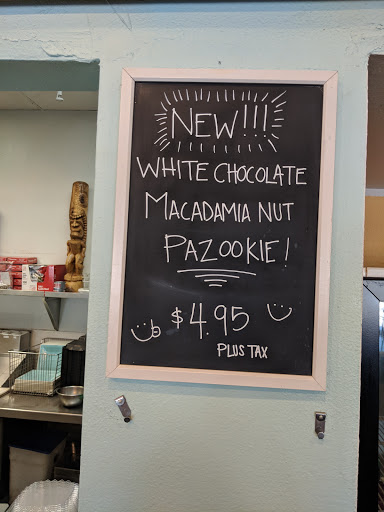 NEW!!!
WHITE CHOCOLATE
MACADAMIA NUT
PAZOOKIE!
$4.95
PLUS TAX